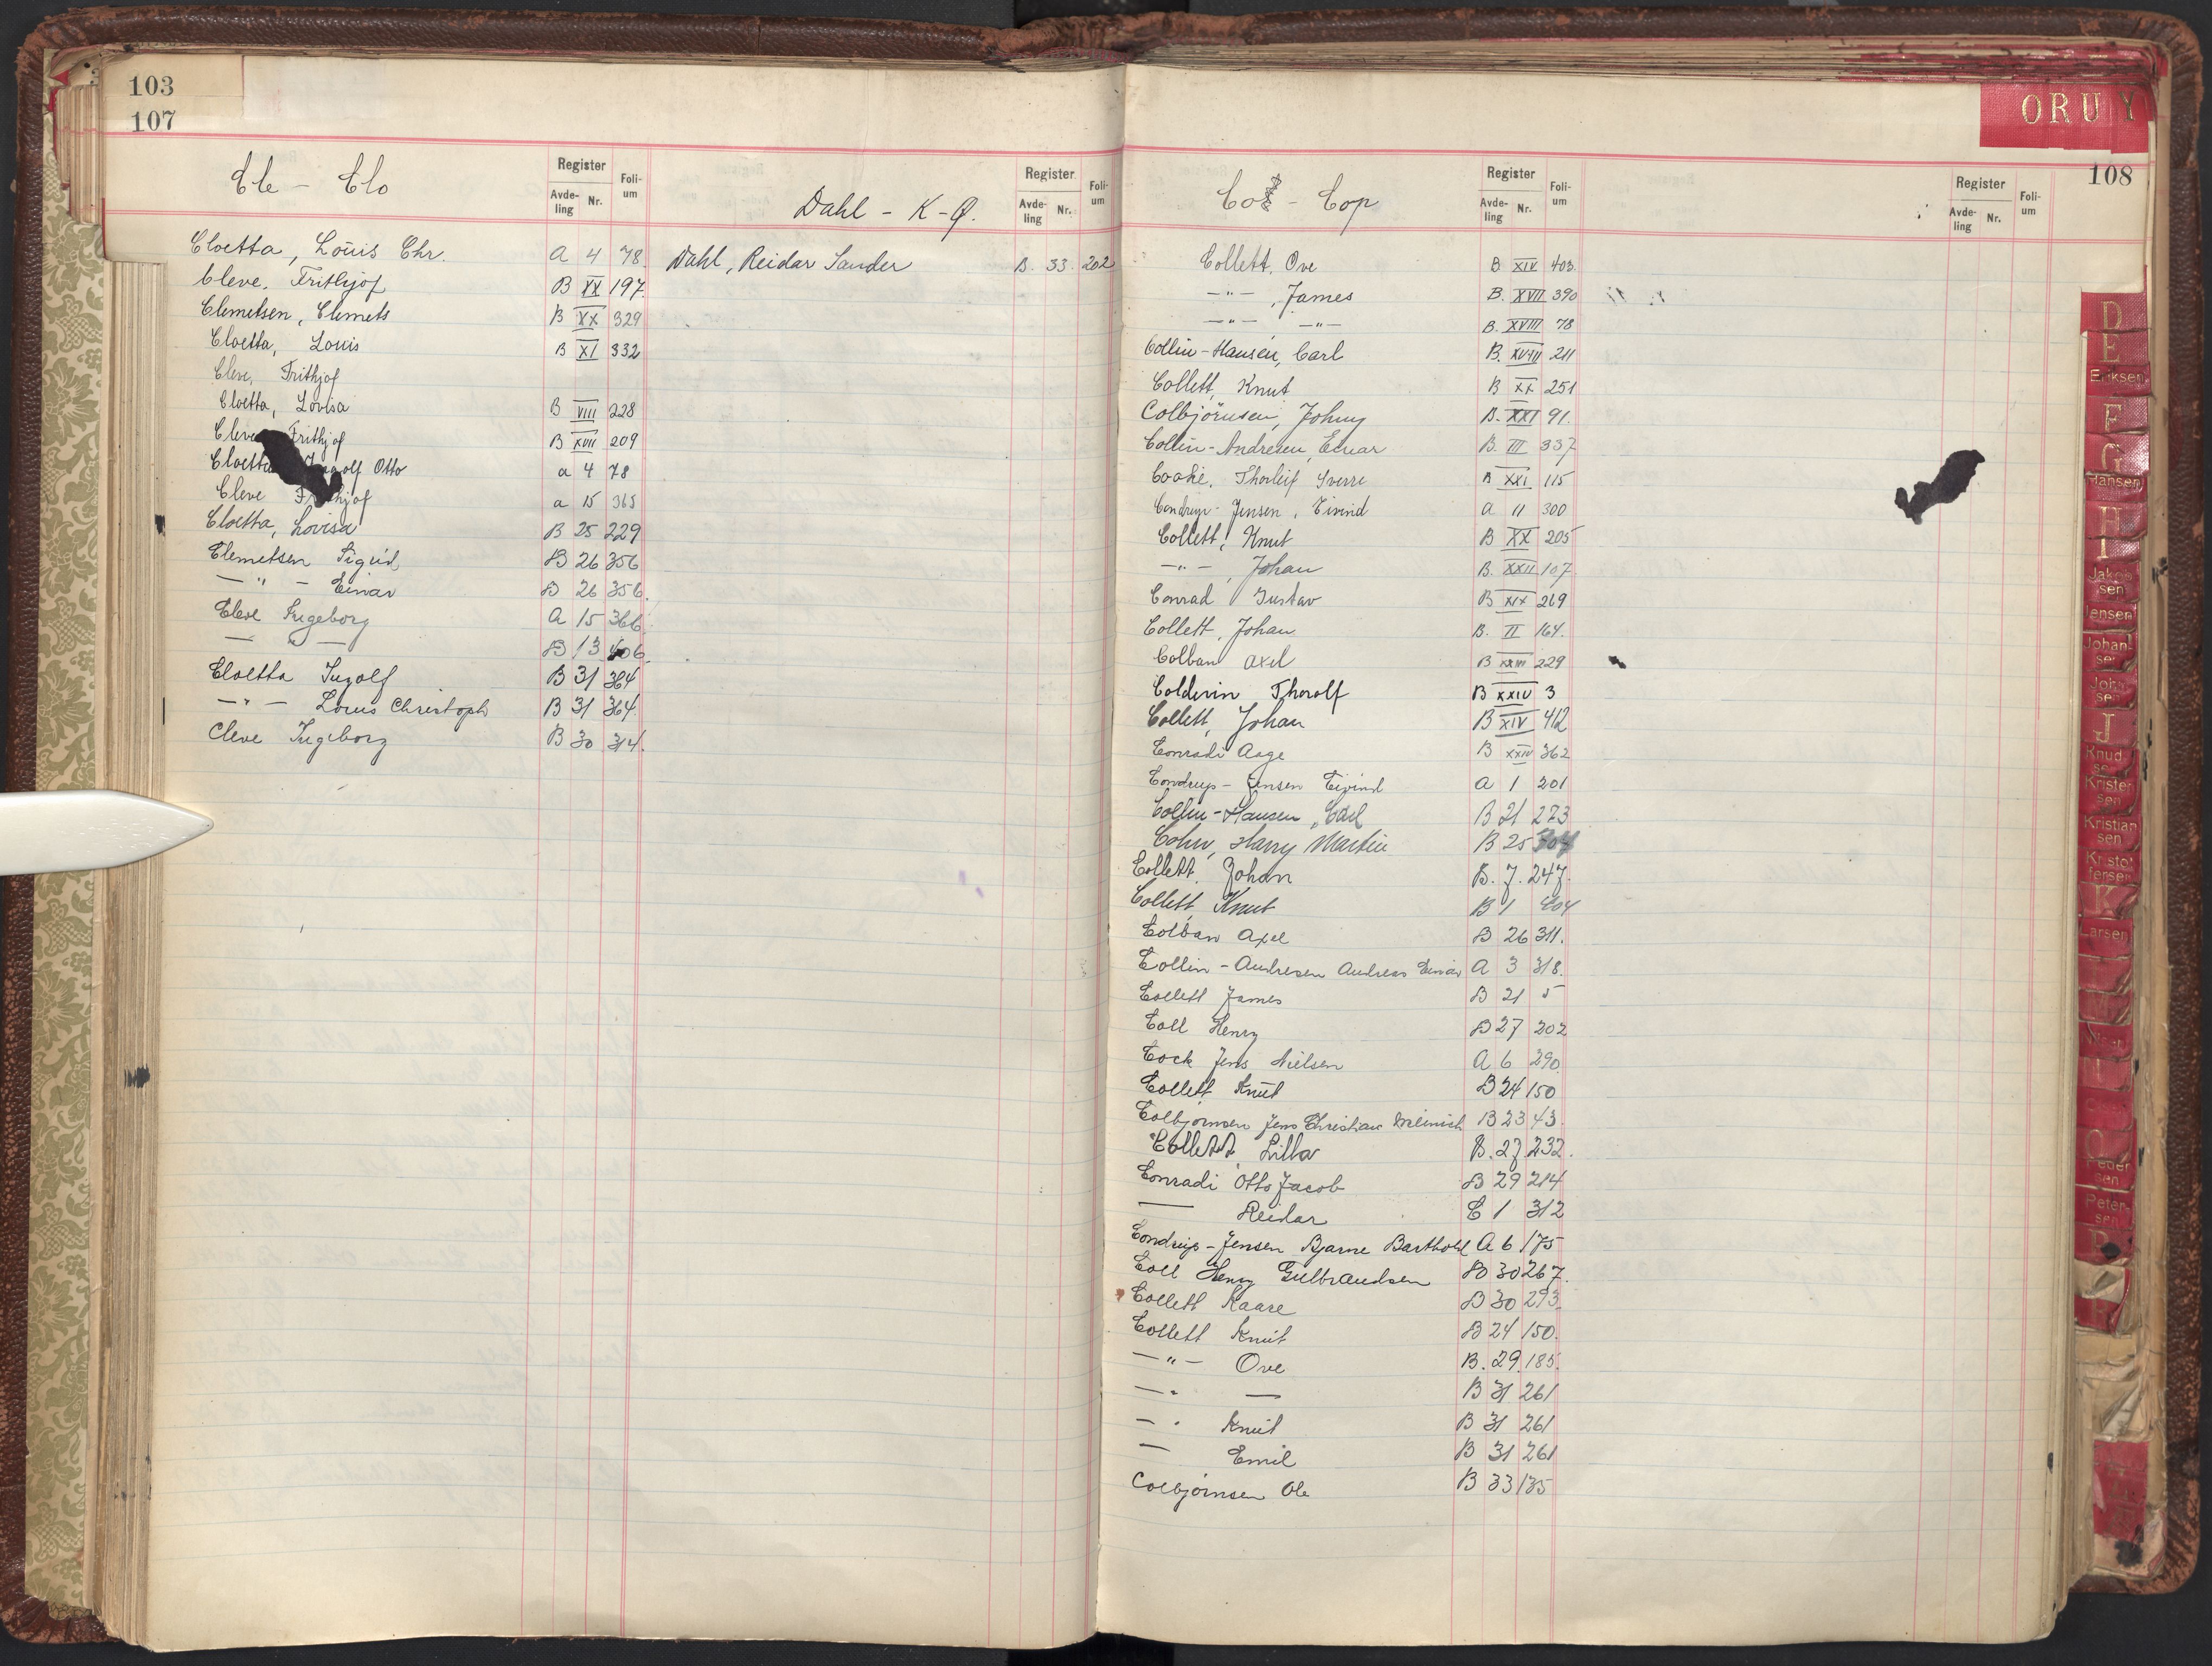 103
107
Cle - Clo
Register
Avde-
ling
Nr.
Foli-
um
Dahl - K-Q.
Register
Avde-
ling
Nr.
Foli-
um
Cloetta, Louis Chr. A 4 78.
Cleve, Frithjof B XX 197.
Clemetsen, Clemets B XX 329
Cloetta, Louis B XI 332
Cleve, Frithjof
Cloetta, Lovisa B VIII 228
Cleve Frithjof B XVII 209
Cloetta Ingolf Otto a 4 78
Cleve Frithjof a 15 365
Cloetta, Lovisa B 25 229
Clemetsen Sigrid B 26 356
— " — Einar B 26 356.
Cleve Ingeborg A 15 366.
— " — B 13 406.
Cloetta Ingolf B 31 364
— " — Louis Christoph B 31 364.
Cleve Ingeborg B 30 314.
Dahl, Reidar Sander B. 33. 202
ORUY
108
Co - Cop
Register
Avde-
ling
Nr.
Foli-
um
Register
Avde-
ling
Nr.
Foli-
um
Collett, Ove B XIV 403.
— " — , James B. XVII 390
— " — — " — B. XVIII 78
Collin-Hansen, Carl B. XVIII 211
Collett, Knut B XX 251
Colbjörnsen, Johny B. XXI 91.
Collin-Andresen, Einar B. III 337
Thorleif Sverre B XXI 115
Condrup-Jensen, Eivind A 11 300
Collett, Knut B XX 205
— " — , Johan B. XXII 107.
Conrad Gustav B XIX 269
Collett, Johan B. II 164.
Colban Axel B XXIII 229
Thorolf B XXIV 3
Collett, Johan B XIV 412
Conradi Aage B XXIV 362
Condrup-Jensen Eivind A 1 201
Collin-Hansen, Carl B 21 273
Cohn, Harry Martin B 25
Collett, Johan B. 7. 247.
Collett, Knut B 1 404
Colban Axel B 26 311.
Collin-Andresen Andreas Einar A 3 318.
Collett James B 21 5
Coll Henry B 27 202
Cock Jens Nielsen A 6 290.
Collett Knut B 24 150
Colbjornsen Jens Christian Meinich B 23 43.
Collett, Lilla B. 27 232.
Conradi Otto Jacob B 29 214
— Reidar C 1 312
Condrup-Jensen Bjarne Barthold A 6 175
Coll Henry Gulbrandsen B 30 267.
Collett Kaare B 30 293.
Collett Knut B 24 150.
— " — Ove B. 29. 185.
— " — B 31 261
— " Knut B 31 261
— Emil B 31 261
Colbjørnsen Ole B 33 135
D
E
Eriksen
F
G
Hansen
H
I
Jakob
sen
Jensen
Johan
sen
Joh
sen
J
Knud
sen
Kristen
sen
Kristian
sen
Kristof
fersen
K
Larsen
Peder
sen
Peter
sen